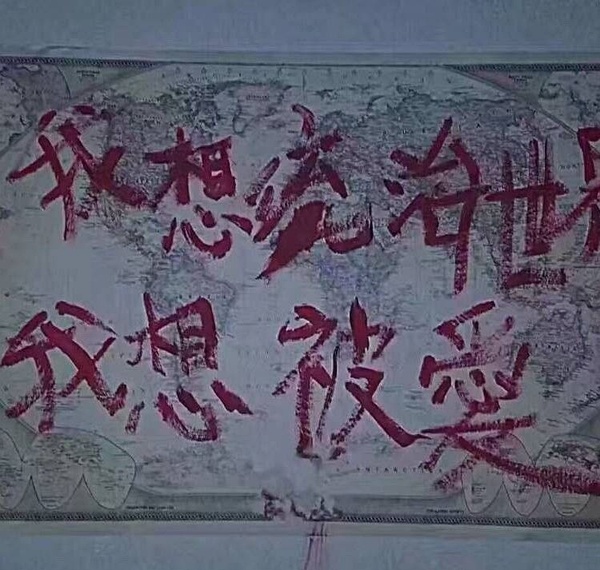 我想统治世界
我想被爱